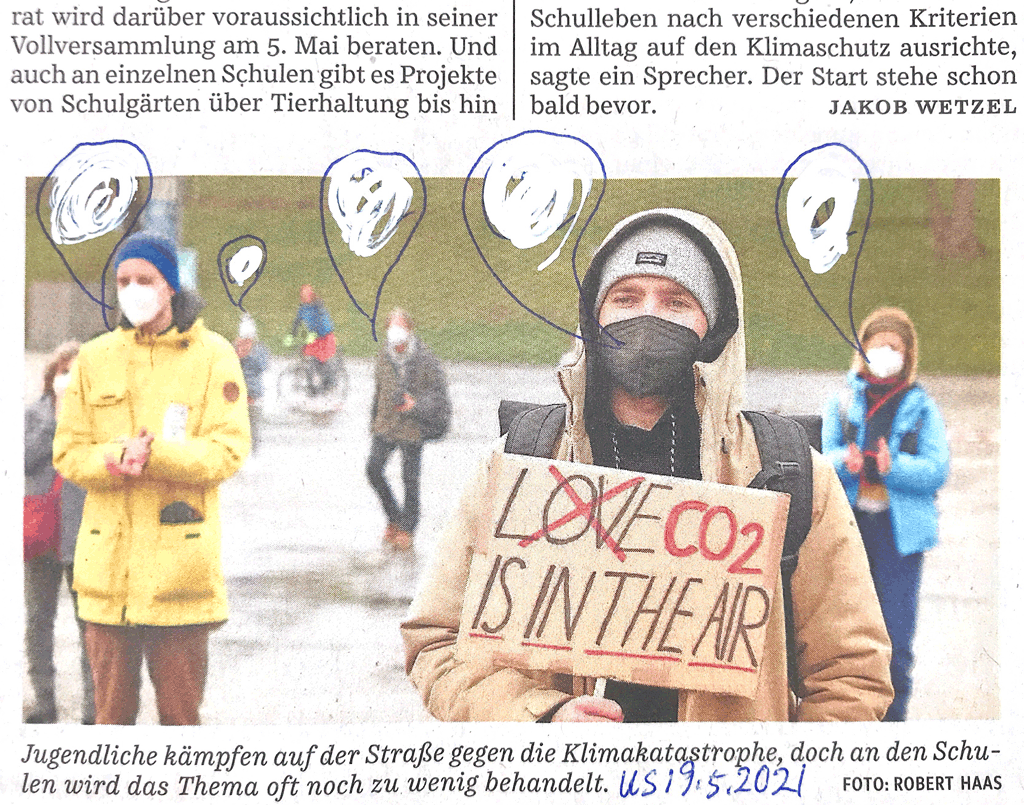 rat wird darüber voraussichtlich in seiner
Vollversammlung am 5. Mai beraten. Und
auch an einzelnen Schulen gibt es Projekte
von Schulgärten über Tierhaltung bis hin
Schulleben nach verschiedenen Kriterien
im Alltag auf den Klimaschutz ausrichte,
sagte ein Sprecher. Der Start stehe schon
bald bevor. JAKOB WETZEL
LOVE CO2
IS IN THE AIR
Jugendliche kämpfen auf der Straße gegen die Klimakatastrophe, doch an den Schu-
len wird das Thema oft noch zu wenig behandelt. US 19.5.2021 FOTO: ROBERT HAAS